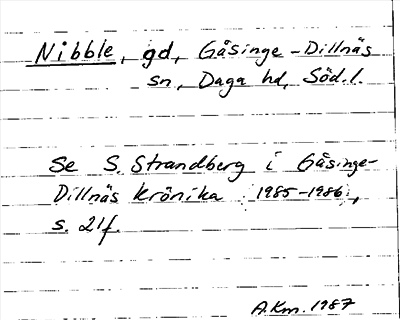 Nibble, gd, Gåsinge-Dillnäs
sn, Daga hd, Söd.l.
Se S. Strandberg i Gåsinge-
Dillnäs krönika 1985-1986,
s. 21f.
A.Km. 1987